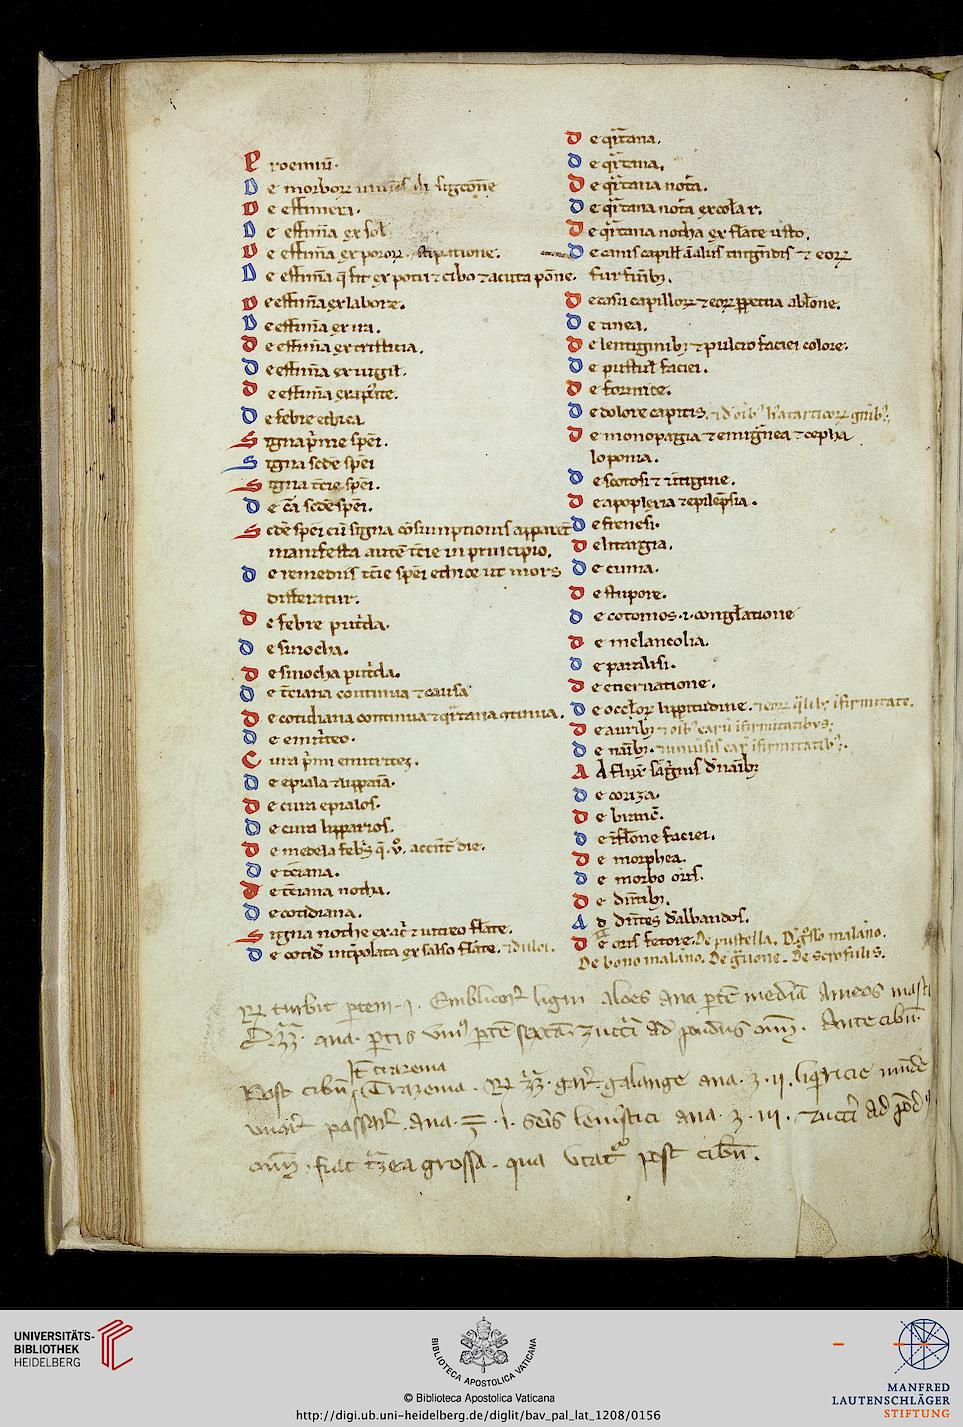 Proemiu᷑.
De morbor᷑
De effimera.
De effim̄a ex sol
De effim̄a ex poror᷑ stipatione.
De effim̄a q̄ fit ex potu ⁊ cibo ⁊ acuta pōne.
De effim̄a ex labore.
De effim̄a ex ira.
De effim̄a ex tristicia.
De effim̄a ex uigil̄.
De effim̄a
De febre ethica
Signa p͛me sp̄ei.
Signa sc̄de sp̄ei
Signa t̄cie sp̄ei.
De cā sc̄de sp̄ei.
Sc̄de sp̄ei cū signa cōsumptionis apparēt
manifesta autē t̄cie in principio.
De remediis t̄cie sp̄ei ethice ut mors
differatur.
De febre put͛da.
De sinocha.
De sinocha put͛da.
De t̄ciana continua ⁊ causa
De cotidiana continua ⁊ q͛tana ꝯtinua.
De emit͛teo.
Cura p͛mi emitritei.
De epiala ⁊ lipparia.
De cura epialos.
De cura lipparios.
De medela febr̄ q̄ v͛. accn̄t die.
De t̄ciana.
De t̄ciana notha.
De cotidiana.
Signa nothe ex ac͛ ⁊ uitreo fl̄ate.
De cotid̄ int͛polata ex salso fl̄ate. ⁊ dulci.
De q͛tana.
De q͛tana.
De q͛tana not̄a.
De q͛tana not̄a ex col̄a r.
De q͛tana notha ex fl̄ate usto.
De canis capill̄ ⁊ aliis tingn̄dis ⁊ eor᷑
furfurib᷒.
De casu capillor᷑ ⁊ eor᷑ ꝑpetua abl̄one.
De tinea.
De lentiginib᷒ ⁊ pulcro faciei colore.
De pustul̄ faciei.
De formice.
De dolore capitis. ⁊ d' oīb᷒
De monopagia ⁊ emig͛nea ⁊ cepha
loponia.
De scotosi ⁊ u͛tigine.
De apoplexia ⁊ epilēpsia.
De frenesi.
De litargia.
De cuma.
De stupore.
De cotomos .i. congl̄atione
De melancolia.
De paralisi.
De eneruatione.
De oculor᷑ lippitudine. ⁊ eor᷑ q͛lib᷒ īfirmitate.
De aurib᷒ ⁊ oīb᷒ earū īfirmitatib᷒.
De narib᷒. ⁊ uniuēsis ear᷑ īfirmitatib᷒.
Ad flux̄ sāg͛nis d' narib᷒
De coriza.
De branc̄.
De īfl̄one faciei.
De morphea.
De morbo oris.
De dn̄tib᷒.
Ad dn̄tes d'albandos.
De oris fetore. De pustella. D' malāno.
De bono malāno. De De scrofulis.
R᷒ turbit ptem .i. Emblicor᷑ ligni aloes ana p̄tē mediā Ameos masti
ana. p̄tis uni᷒ p̄tē sextā. zucc̄i ad pondus oīm. Ante cibū.
Post cibū Tragema. R᷒ gar᷑. galange ana. ʒ. ii. liq͛ricie mūde
uuar᷑ passar᷑ ana .i. Sēis leuistici ana ʒ. iii. zucc̄i ad pōd᷒
oīm. fiat t͛gea grossa. qua utat᷑ post cibū.
UNIVERSITÄTS-
BIBLIOTHEK
HEIDELBERG
BIBLIOTECA APOSTOLICA VATICANA
© Biblioteca Apostolica Vaticana
http://digi.ub.uni-heidelberg.de/diglit/bav_pal_lat_1208/0156
MANFRED
LAUTENSCHLÄGER
STIFTUNG